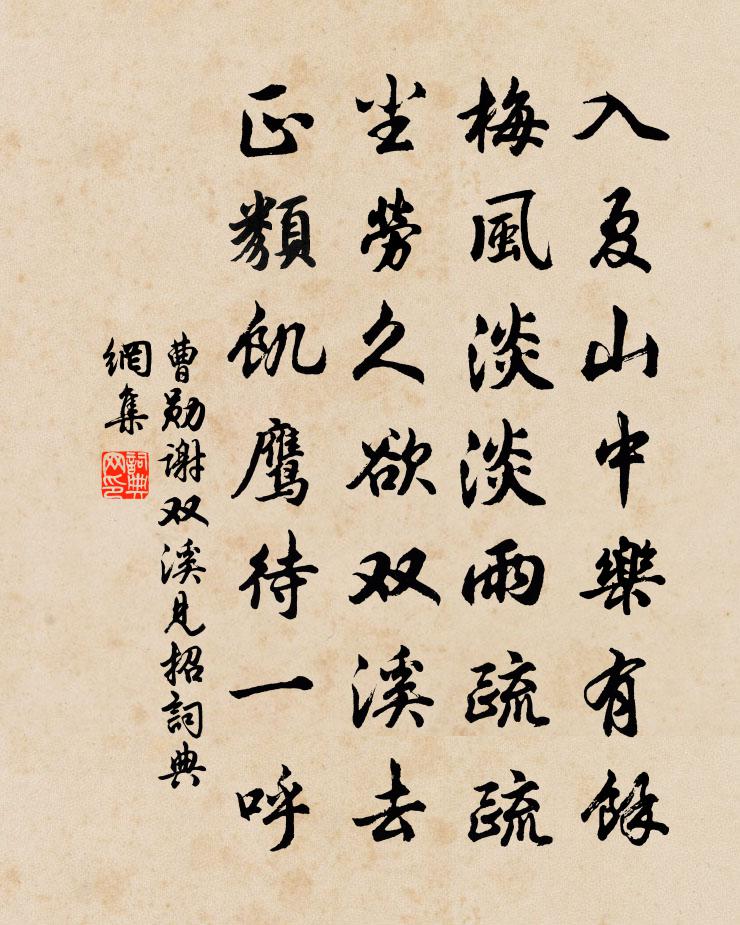 入夏山中樂有餘
梅風淡淡雨疏疏
尘勞久欲双溪去
正類飢鷹待一呼
曹勋谢双溪见招詞典
網集
詞典
网印